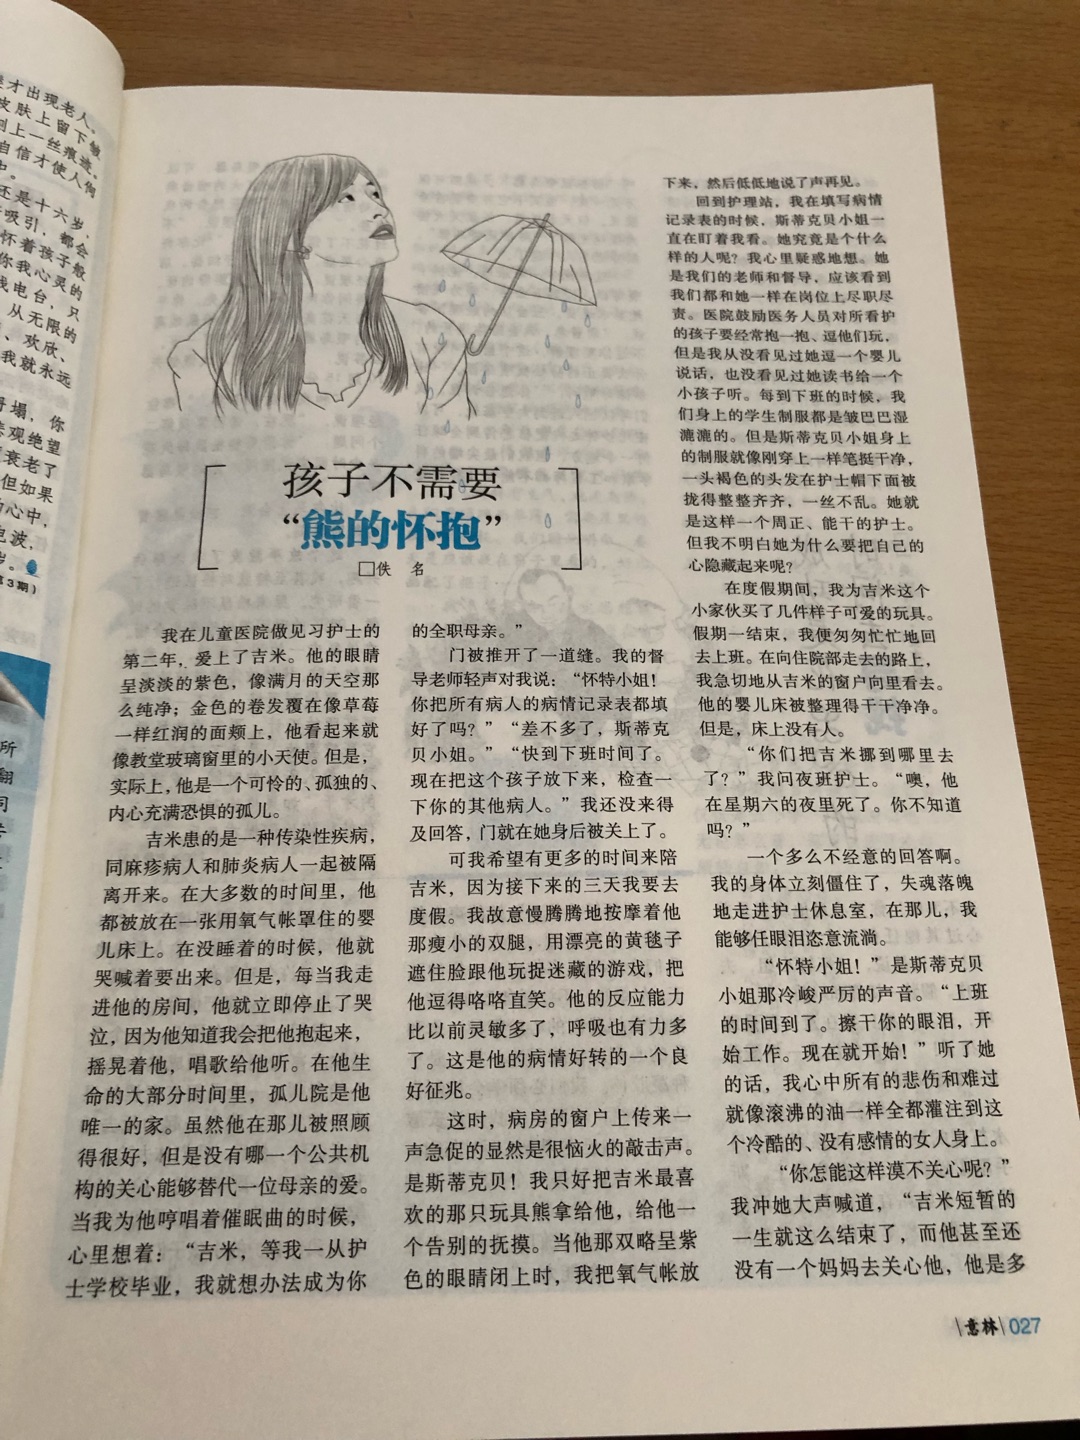 要才出现老人。
皮肤上留下皱
刻上一丝痕迹。
自信才使人佝
中。
还是十六岁，
吸引，都会
怀着孩子般
你我心灵的
线电台，只
从无限的
、欢欣、
我就永远
塌，你
悲观绝望
衰老了
但如果
心中，
电波，
岁。
第3期）
所
翻
同
孩子不需要
“熊的怀抱”
□佚 名
我在儿童医院做见习护士的
第二年，爱上了吉米。他的眼睛
呈淡淡的紫色，像满月的天空那
么纯净；金色的卷发覆在像草莓
一样红润的面颊上，他看起来就
像教堂玻璃窗里的小天使。但是，
实际上，他是一个可怜的、孤独的、
内心充满恐惧的孤儿。
吉米患的是一种传染性疾病，
同麻疹病人和肺炎病人一起被隔
离开来。在大多数的时间里，他
都被放在一张用氧气帐罩住的婴
儿床上。在没睡着的时候，他就
哭喊着要出来。但是，每当我走
进他的房间，他就立即停止了哭
泣，因为他知道我会把他抱起来，
摇晃着他，唱歌给他听。在他生
命的大部分时间里，孤儿院是他
唯一的家。虽然他在那儿被照顾
得很好，但是没有哪一个公共机
构的关心能够替代一位母亲的爱。
当我为他哼唱着催眠曲的时候，
心里想着：“吉米，等我一从护
士学校毕业，我就想办法成为你
的全职母亲。”
门被推开了一道缝。我的督
导老师轻声对我说：“怀特小姐！
你把所有病人的病情记录表都填
好了吗？”“差不多了，斯蒂克
贝小姐。”“快到下班时间了。
现在把这个孩子放下来，检查一
下你的其他病人。”我还没来得
及回答，门就在她身后被关上了。
可我希望有更多的时间来陪
吉米，因为接下来的三天我要去
度假。我故意慢腾腾地按摩着他
那瘦小的双腿，用漂亮的黄毯子
遮住脸跟他玩捉迷藏的游戏，把
他逗得咯咯直笑。他的反应能力
比以前灵敏多了，呼吸也有力多
了。这是他的病情好转的一个良
好征兆。
这时，病房的窗户上传来一
声急促的显然是很恼火的敲击声。
是斯蒂克贝！我只好把吉米最喜
欢的那只玩具熊拿给他，给他一
个告别的抚摸。当他那双略呈紫
色的眼睛闭上时，我把氧气帐放
下来，然后低低地说了声再见。
回到护理站，我在填写病情
记录表的时候，斯蒂克贝小姐一
直在盯着我看。她究竟是个什么
样的人呢？我心里疑惑地想。她
是我们的老师和督导，应该看到
我们都和她一样在岗位上尽职尽
责。医院鼓励医务人员对所看护
的孩子要经常抱一抱、逗他们玩，
但是我从没看见过她逗一个婴儿
说话，也没看见过她读书给一个
小孩子听。每到下班的时候，我
们身上的学生制服都是皱巴巴湿
漉漉的。但是斯蒂克贝小姐身上
的制服就像刚穿上一样笔挺干净，
一头褐色的头发在护士帽下面被
拢得整整齐齐，一丝不乱。她就
是这样一个周正、能干的护士。
但我不明白她为什么要把自己的
心隐藏起来呢？
在度假期间，我为吉米这个
小家伙买了几件样子可爱的玩具。
假期一结束，我便匆匆忙忙地回
去上班。在向住院部走去的路上，
我急切地从吉米的窗户向里看去。
他的婴儿床被整理得干干净净。
但是，床上没有人。
“你们把吉米挪到哪里去
了？”我问夜班护士。“噢，他
在星期六的夜里死了。你不知道
吗？”
一个多么不经意的回答啊。
我的身体立刻僵住了，失魂落魄
地走进护士休息室，在那儿，我
能够任眼泪恣意流淌。
“怀特小姐！”是斯蒂克贝
小姐那冷峻严厉的声音。“上班
的时间到了。擦干你的眼泪，开
始工作。现在就开始！”听了她
的话，我心中所有的悲伤和难过
就像滚沸的油一样全都灌注到这
个冷酷的、没有感情的女人身上。
“你怎能这样漠不关心呢？”
我冲她大声喊道，“吉米短暂的
一生就这么结束了，而他甚至还
没有一个妈妈去关心他，他是多
意林 027